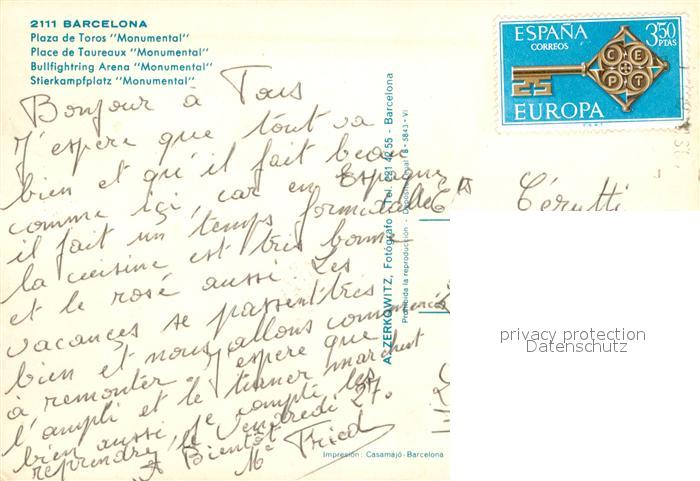 2111 BARCELONA
Plaza de Toros "Monumental"
Place de Taureaux "Monumental"
Bullfightring Arena "Monumental"
Stierkampfplatz "Monumental"
ESPAÑA
CORREOS
3'50
PTAS
C E P T
EUROPA
Bonjour à Tous
J'espere que tout va
bien et qu'il fait beau
comme içi, car en Espagne
il fait un temps formidable
la cuisine est très bonne
et le rosé aussi. Les
vacances se passent très
bien et nous allons commencés
à remonter. J'espere que
l'ampli et le tunner marchent
bien aussi, je compte les
reprendre, le Vendredi 27.
A Bientôt
Me Fried
A. ZERKOWITZ, Fotógrafo - Tel. 221 42 55 - Barcelona
Prohibida la reproducción - Depósito legal B - 5843 - VI
Ets Cérutti
privacy protection
Datenschutz
Impresión: Casamajó - Barcelona